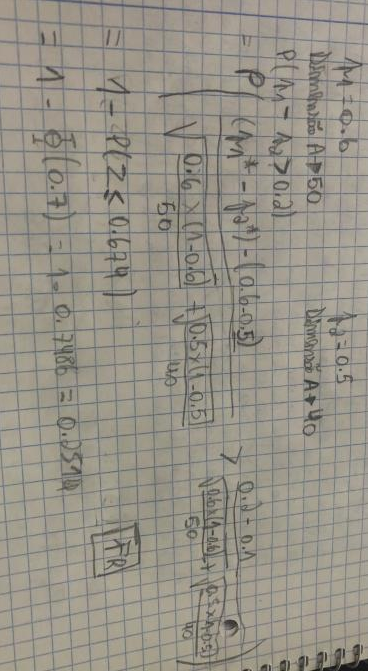 p1 = 0.6 p2 = 0.5
Dimensão A → 50 Dimensão A → 40
P(p1 - p2 > 0.2)
= P( ((p1* - p2*) - (0.6-0.5)) / (√(0.6 × (1-0.6) / 50) + √(0.5×(1-0.5) / 40)) > (0.2 - 0.1) / (√(0.6×(1-0.6) / 50) + √(0.5×(1-0.5) / 40)) )
= 1 - P(Z ≤ 0.674)
= 1 - Φ(0.7) = 1 - 0.7486 = 0.2514